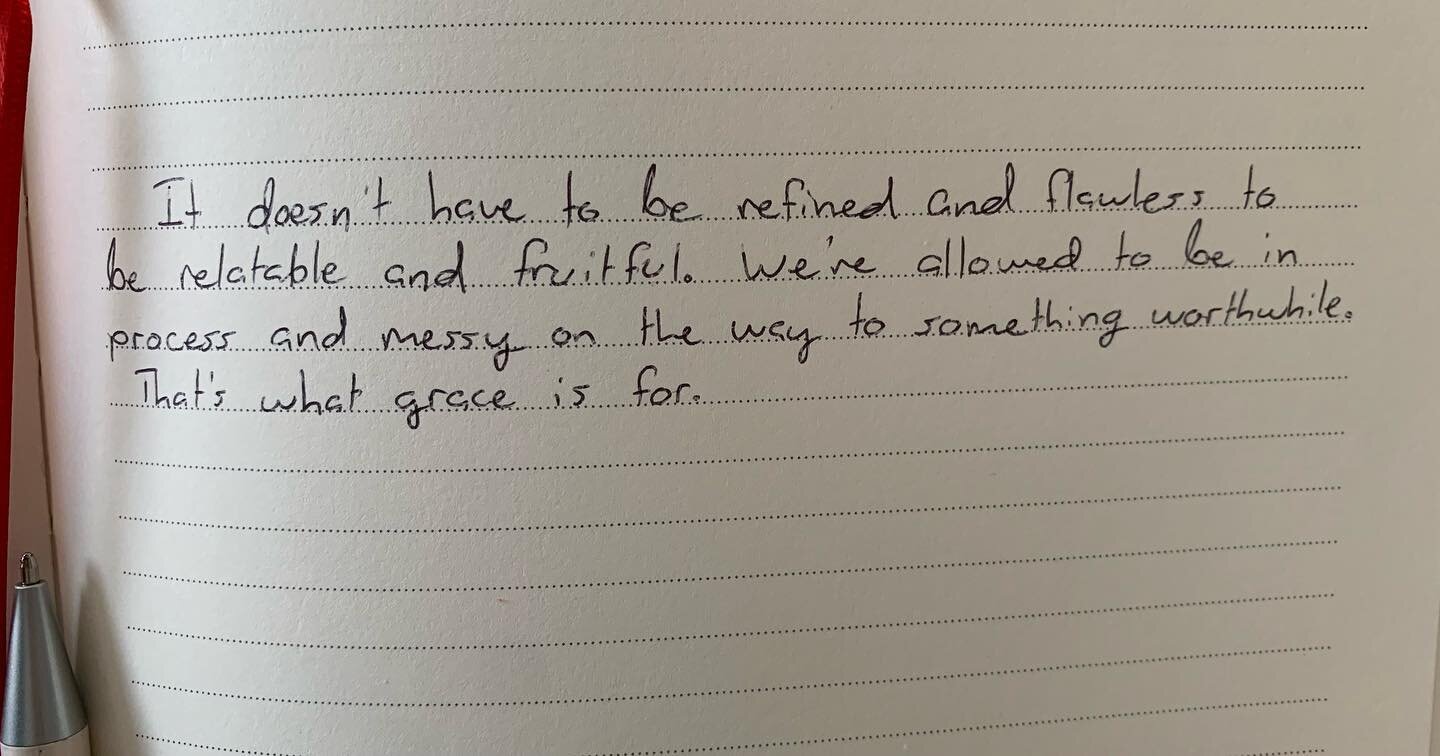 It doesn't have to be refined and flawless to
be relatable and fruitful. We're allowed to be in
process and messy on the way to something worthwhile.
That's what grace is for.